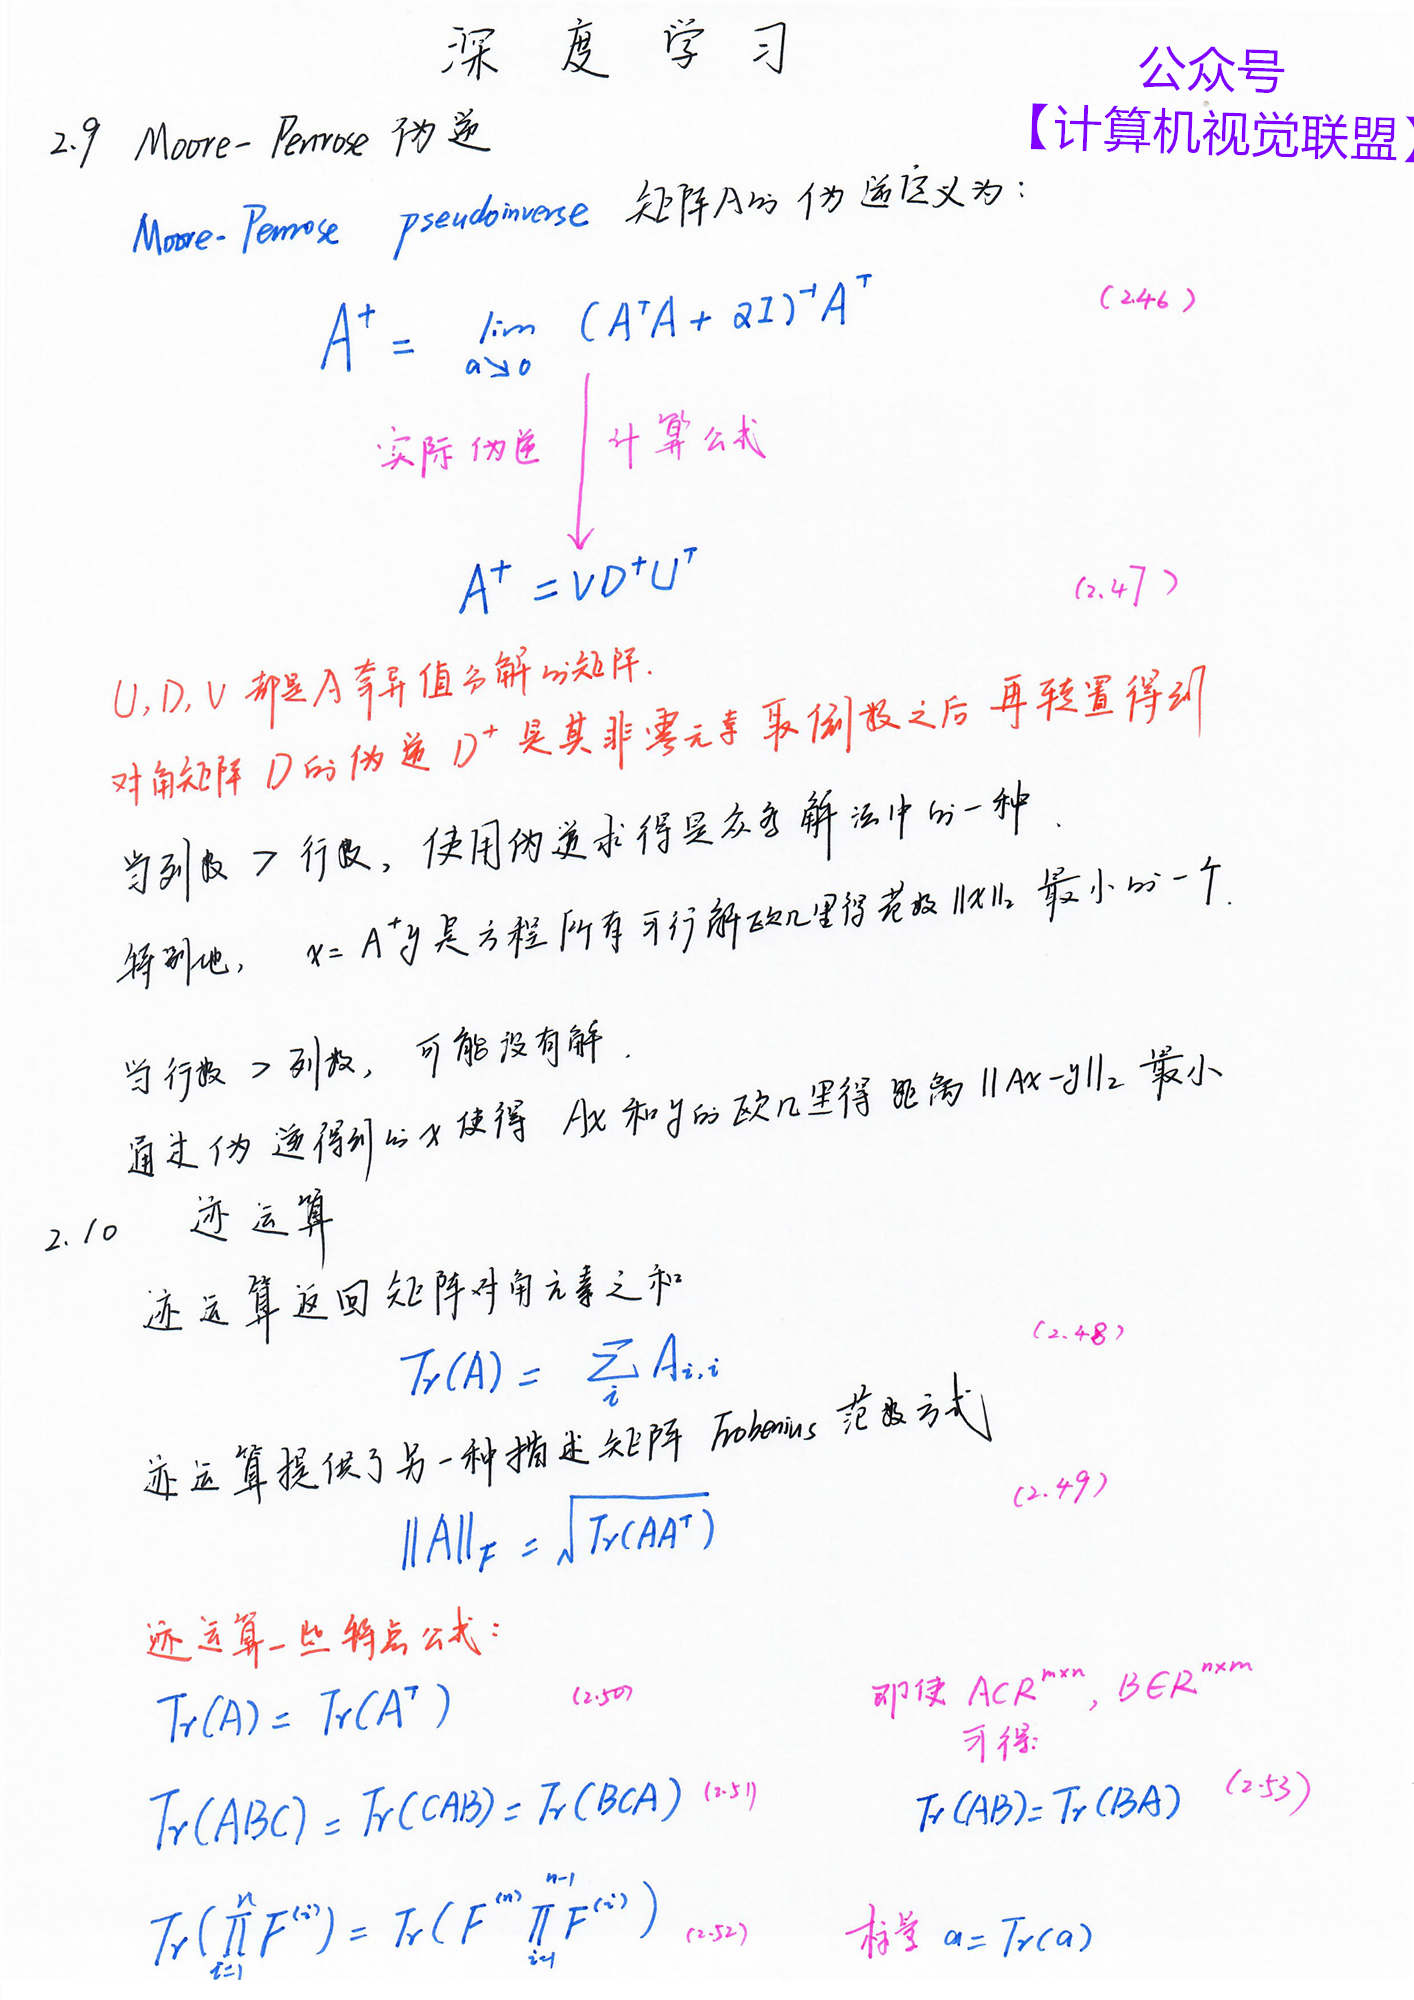 深度学习
公众号
【计算机视觉联盟】
2.9 Moore-Penrose 伪逆
Moore-Penrose pseudoinverse 矩阵A的伪逆定义为:
A⁺ = lim (AᵀA + αI)⁻¹Aᵀ (2.46)
a↘0
实际伪逆 计算公式
A⁺ = VD⁺Uᵀ (2.47)
U, D, V 都是A奇异值分解的矩阵.
对角矩阵 D的伪逆 D⁺ 是其非零元素取倒数之后再转置得到
当列数 > 行数, 使用伪逆求得是众多解法中的一种.
特别地, x = A⁺y是方程所有可行解欧几里得范数 ||x||₂ 最小的一个.
当行数 > 列数, 可能没有解.
通过伪逆得到的x使得 Ax和y的欧几里得距离 ||Ax-y||₂ 最小
2.10 迹运算
迹运算返回矩阵对角元素之和
Tr(A) = ∑ A i,i (2.48)
i
迹运算提供了另一种描述矩阵 Frobenius 范数方式
||A||F = √Tr(AAᵀ) (2.49)
迹运算一些特点公式:
Tr(A) = Tr(Aᵀ) (2.50) 即使 A∈Rᵐˣⁿ, B∈Rⁿˣᵐ
可得:
Tr(ABC) = Tr(CAB) = Tr(BCA) (2.51) Tr(AB) = Tr(BA) (2.53)
Tr(∏ⁿᵢ₌₁ F⁽ⁱ⁾) = Tr(F⁽ⁿ⁾ ∏ⁿ⁻¹ᵢ₌₁ F⁽ⁱ⁾) (2.52) 标量 a = Tr(a)